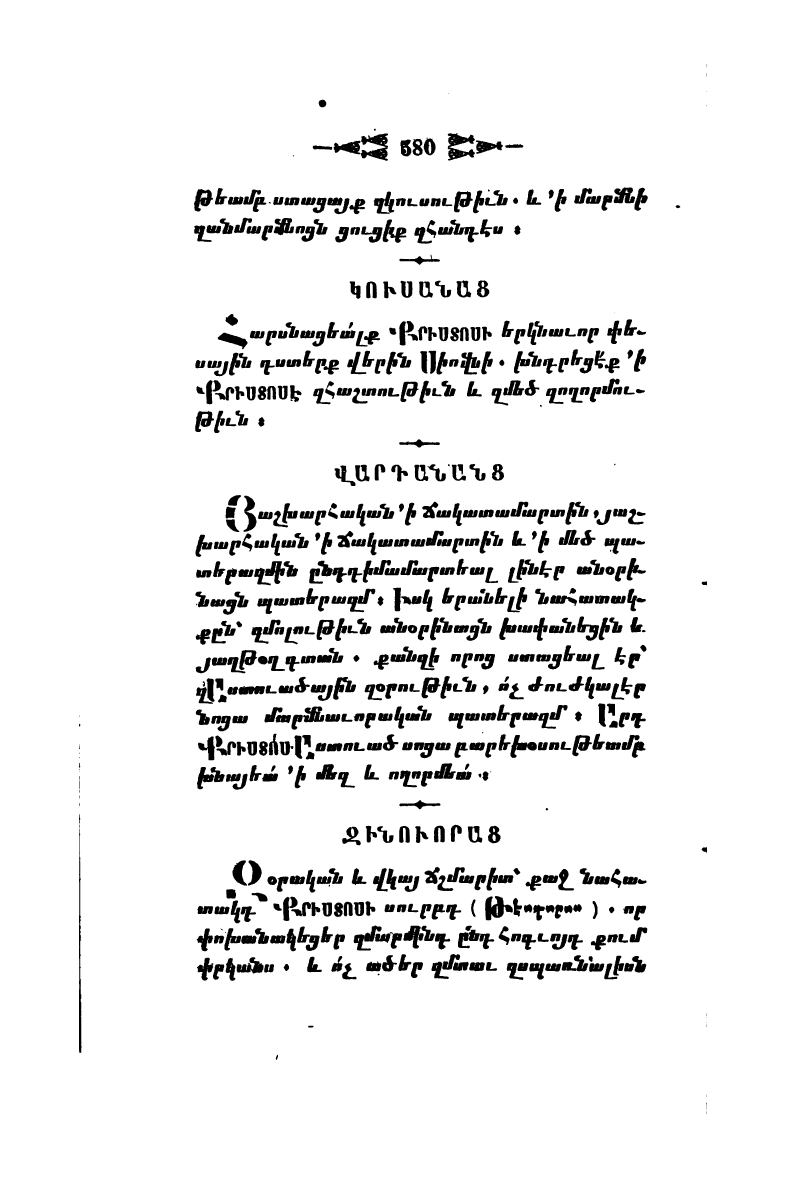 580
թեամբ ստացայք զկուսութիւն. և ՚ի մարմնի
զանմարմնոցն ցուցիք զհանդէս ։
ԿՈՒՍԱՆԱՑ
Հարսնացեալք ՔՐԻՍՏՈՍԻ երկնաւոր փե-
սային դստերք վերին Սիոնի. խնդրեցէք ՚ի
ՔՐԻՍՏՈՍԷ զհաշտութիւն և զմեծ զողորմու-
թիւն ։
ՎԱՐԴԱՆԱՆՑ
Յաշխարհական ՚ի ճակատամարտին, յաշ-
խարհական ՚ի ճակատամարտին և ՚ի մեծ պա-
տերազմին ընդդիմամարտեալ լինէր անօրի-
նացն պատերազմ։ Իսկ երանելի նահատակ-
քըն՝ զմոլութիւն անօրինացն խափանեցին և
յաղթօղ գտան. քանզի որոց ստացեալ էր՝
զԱստուածային զօրութիւն, ո՛չ ժուժկալէր
նոցա մարմնաւորական պատերազմ։ Արդ
ՔՐԻՍՏՈ՛Ս Աստուած սոցա բարեխօսութեամբ
խնայեա՛ ՚ի մեզ և ողորմեա՛ ։
ԶԻՆՈՒՈՐԱՑ
Զօրական և վկայ ճշմարիտ՝ քաջ նահա-
տակդ ՔՐԻՍՏՈՍԻ սուրբդ ( Թէոդորոս ). որ
փոխանակեցեր զմարմինդ ընդ հոգւոյդ քում
փրկանս. և ո՛չ ածեր զմտաւ զսպառնալիսն